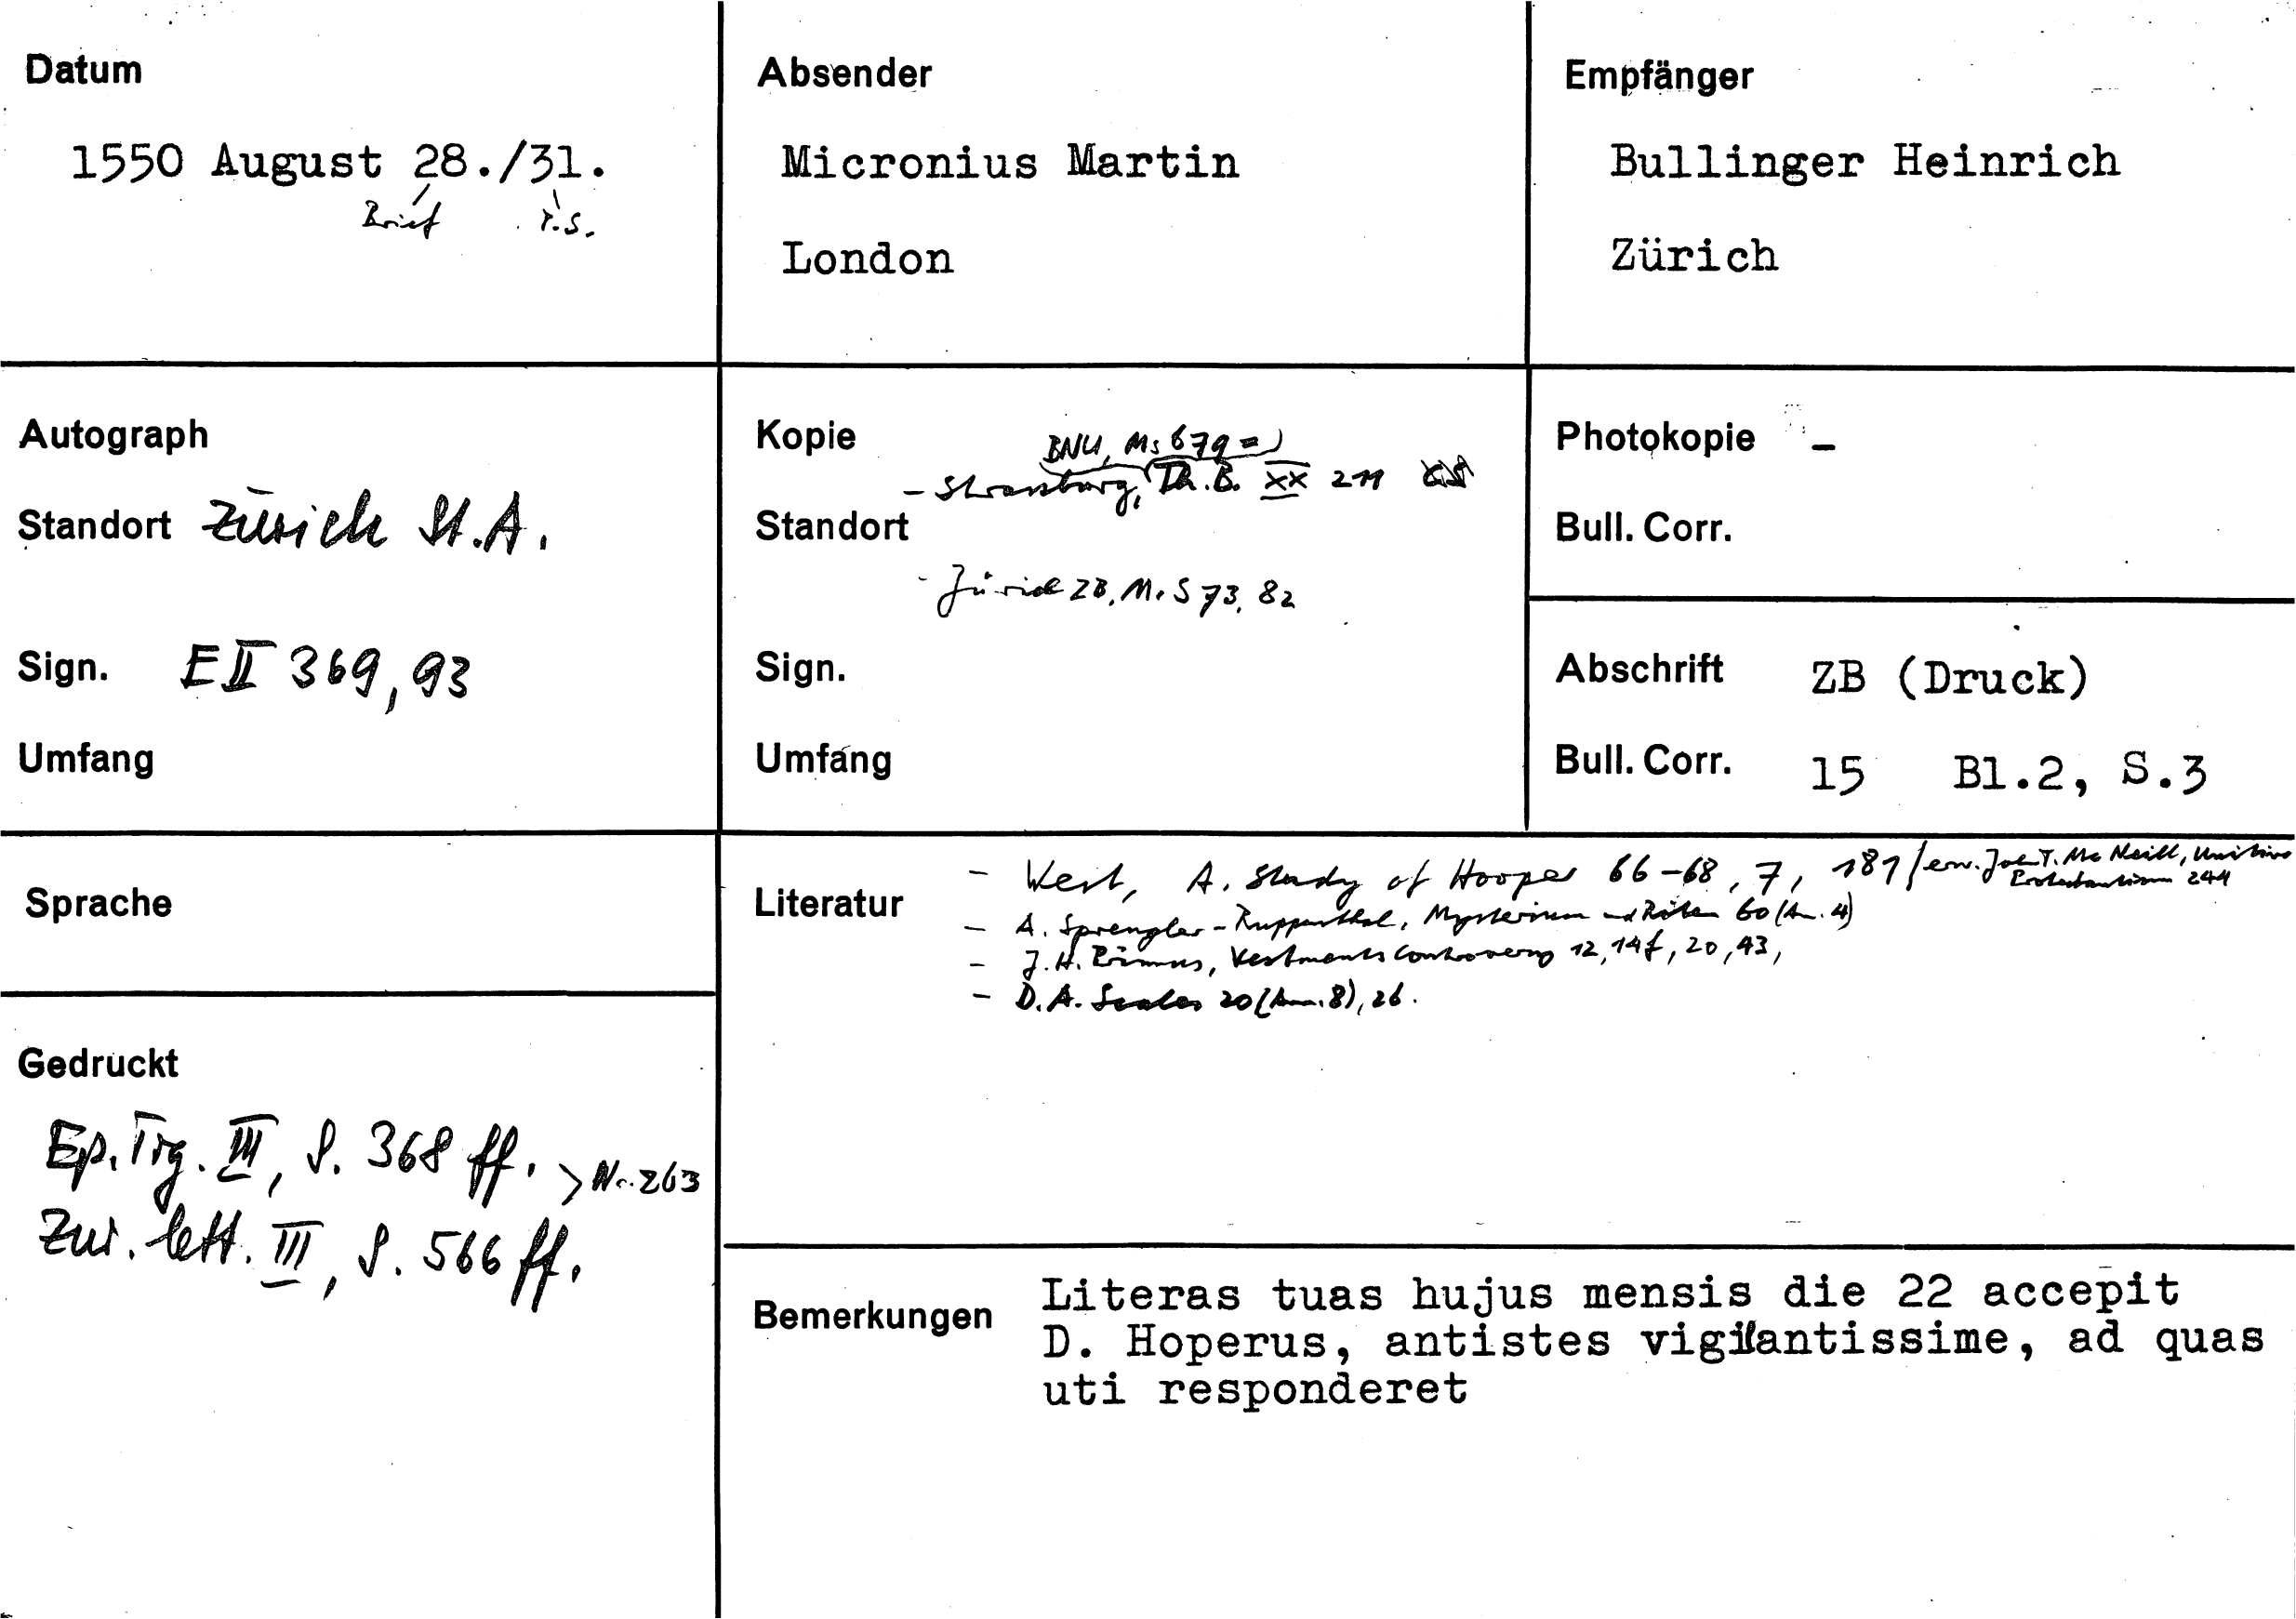 Datum
1550 August 28./31.
Brief P.S.
Absender
Micronius Martin
London
Empfänger
Bullinger Heinrich
Zürich
Autograph
Standort Zürich St.A.
Sign. E II 369, 93
Umfang
Kopie
BNU, Ms 679 =
- Strassburg, Th. B. XX 211
Standort
- Zürich ZB, Ms S 73, 82
Sign.
Umfang
Photokopie -
Bull. Corr.
Abschrift ZB (Druck)
Bull. Corr. 15 Bl.2, S.3
Sprache
Gedruckt
Ep. Tig. III, S. 368 ff. > Nr. 263
Zur. lett. III, S. 566 ff.
Literatur
- West, A. Study of Hooper 66-68, 7, 181 / erw. Joh T. Mc Neill, Unitive Protestantism 244
- A. Sprengler-Ruppenthal, Mysterium und Riten 60 (An. 4)
- J.H. Primus, Vestments Controversy 12, 14f, 20, 43,
- D.A. Scales 20 (Anm. 8), 26.
Bemerkungen
Literas tuas hujus mensis die 22 accepit
D. Hoperus, antistes vigilantissime, ad quas
uti responderet